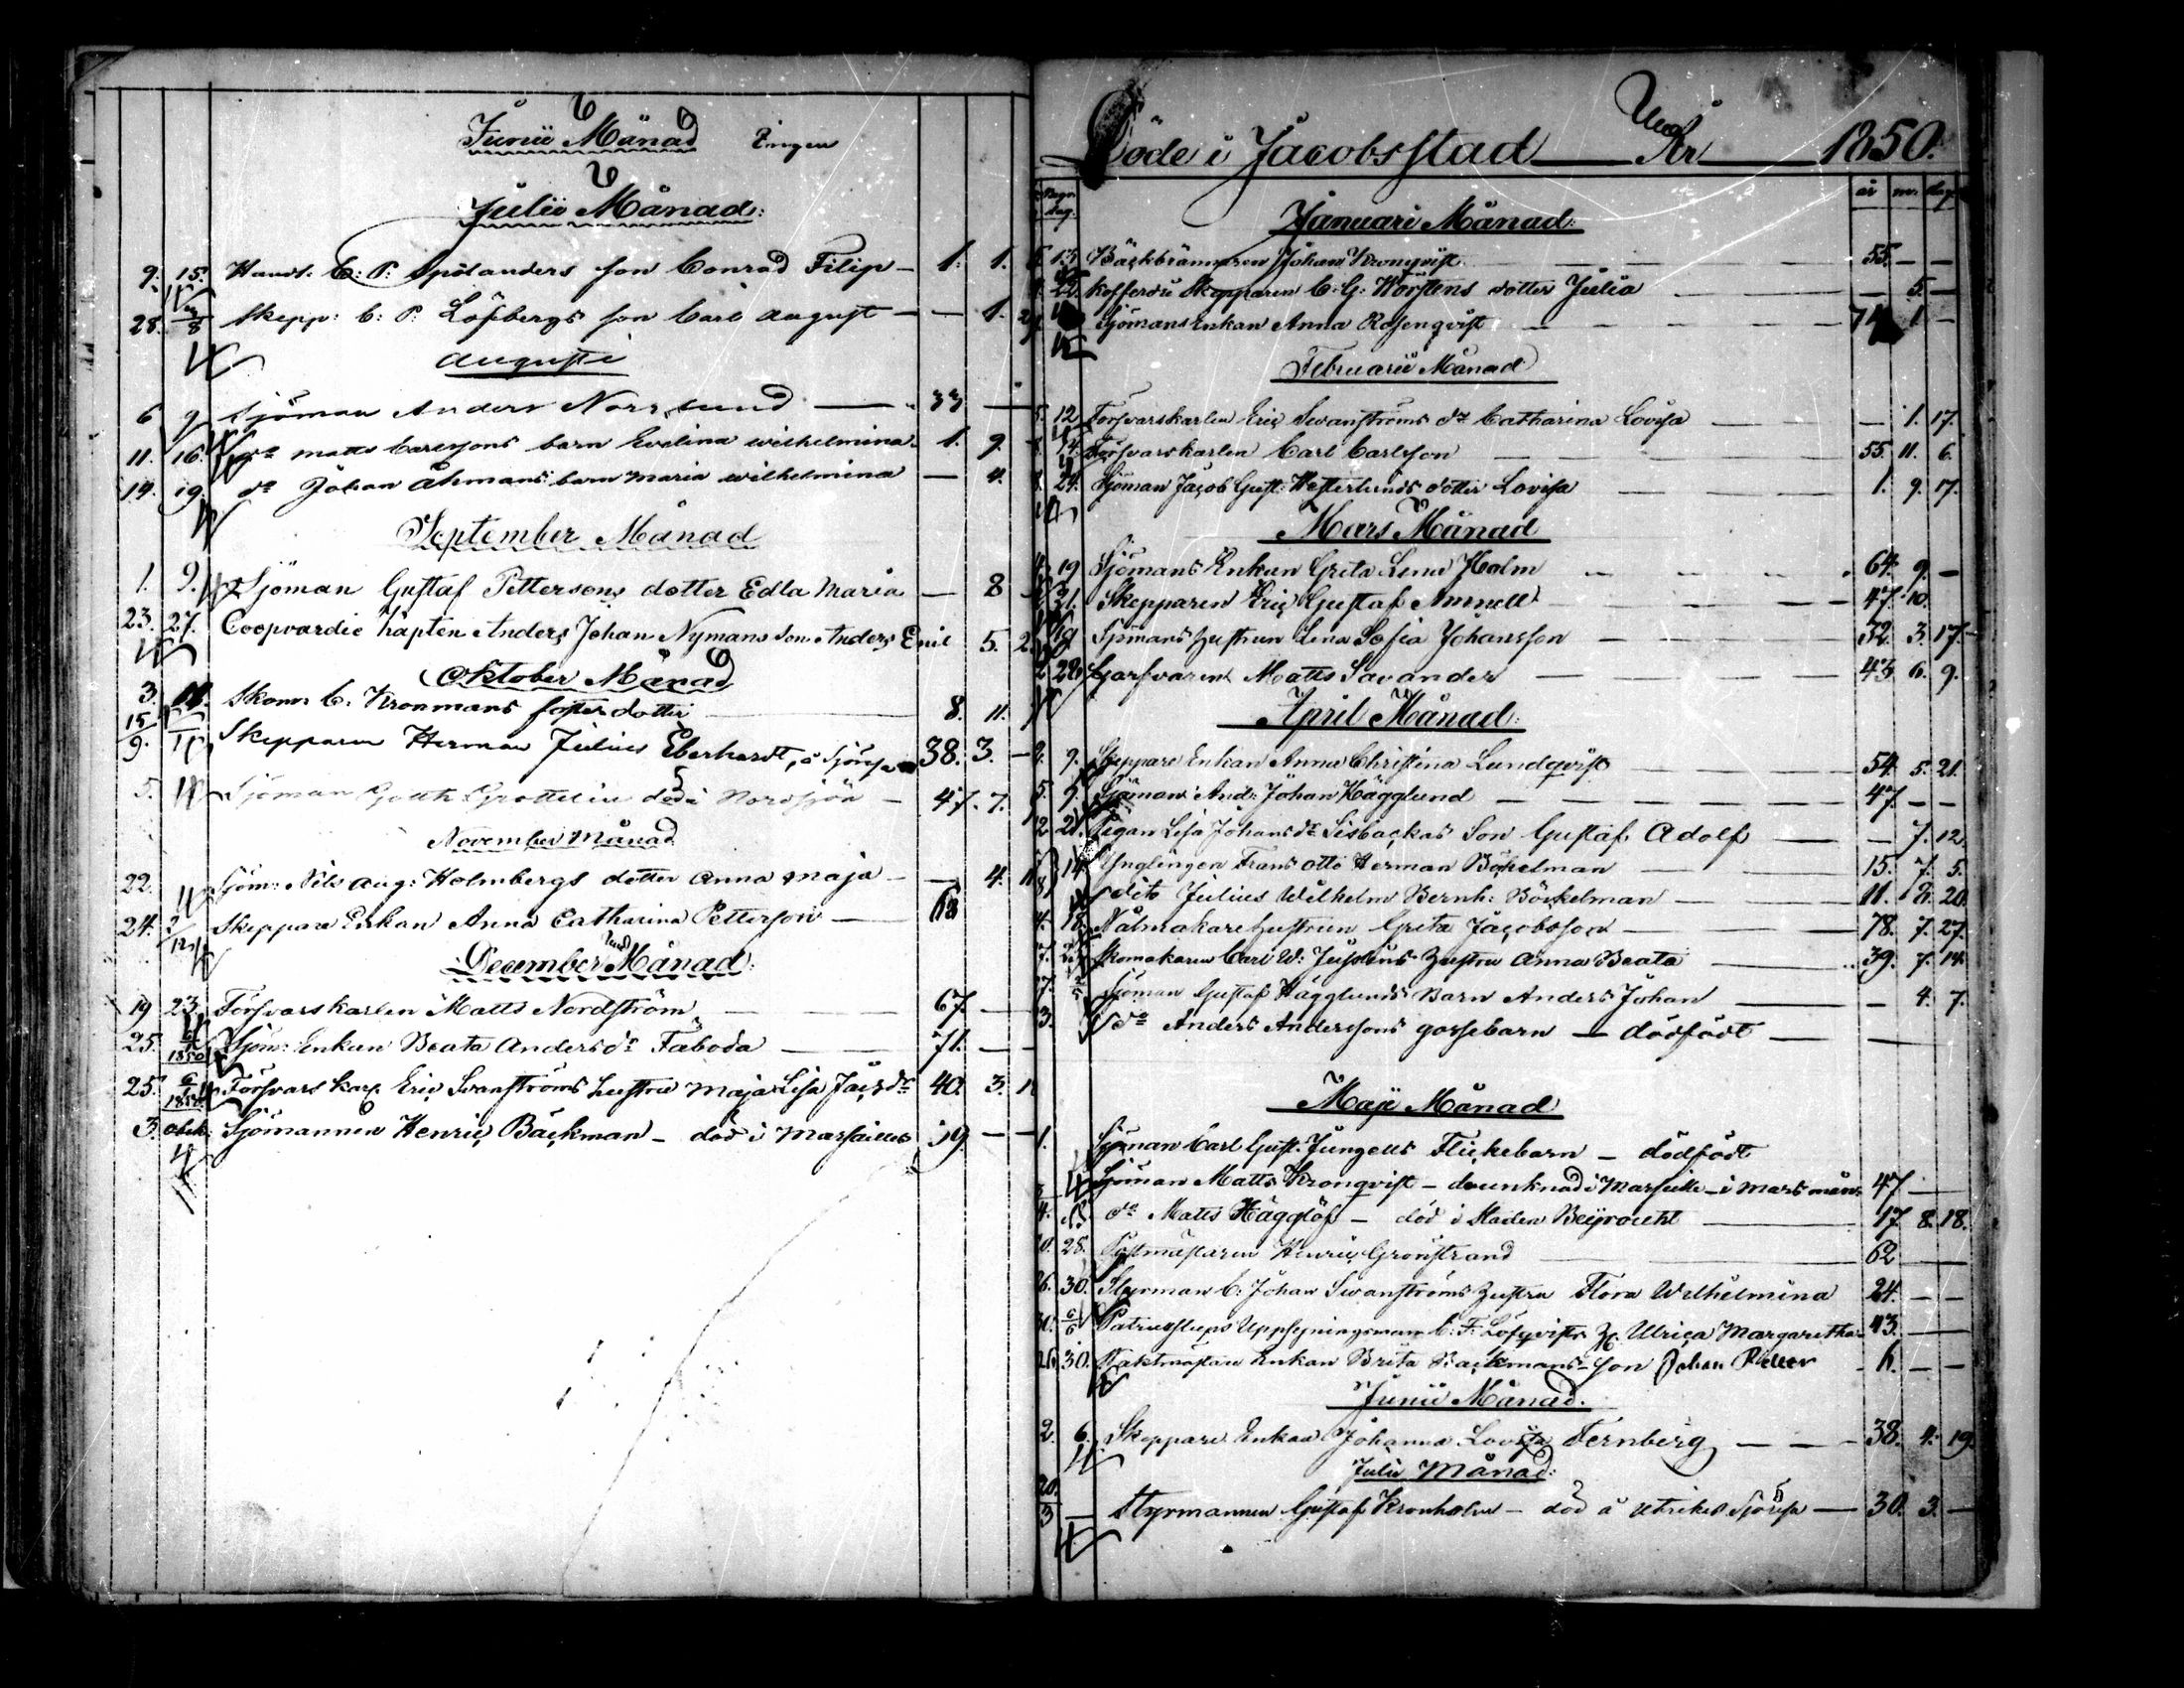 Junii Månad Ingen
Julii Månad:
9. 15. Handl. C: P: Spolanders son Conrad Filip — 1. 1.
28. 8 Skepp: C: P: Löfbergs son Carl August — — 1.
Augusti
6 9 Sjöman Anders Norrsund — 33 —
11. 16. do Matts Carlsons barn Evelina Wilhelmina. 1. 9.
19. 19. do Johan Åhmans barn Maria Wilhelmina — 4.
September Månad
1. 9. Sjöman Gustaf Pettersons dotter Edla Maria — 8
23. 27. Coopvardie Kapten Anders Johan Nymans son Anders Emil 5. 2.
Oktober Månad
3. Skom: C. Kronmans fosterdotter 8. 11.
15/9. Skepparen Herman Julius Eberhardt, å Sjöresa 38. 3. —
5. Sjöman död i Nordsjön — 47. 7.
November Månad
22. Sjöm: Nils Aug: Holmbergs dotter Anna Maja — — 4.
24. 2/12 Skeppare Enkan Anna Catharina Petterson — 68
December Månad:
19 23. Försvarskarlen Matts Nordström — — 67. —
25. 6/1 1850 Sjöm: Enkan Beata Andersdr Fäboda — 71. — —
25. 6/1 1850 Försvarskarl. Eric Svanströms hustru Maja Lisa Jacsdr 40. 3. 1
3. Obek: Sjömannen Henric Backman — död i Marsailles 19. — —
Döde i Jacobsstad Und År 1850.
Begr. dag. år m: dag
Januari Månad:
13 Johan Kronqvist — — — 55. — —
22. Kofferdi Skepparen C: G: Wörstens dotter Julia — — — 5. —
Sjömans Enkan Anna Rosenqvist — — — 74 1 —
Februarii Månad
5. 12. Försvarskarlen Eric Swanströms dr Catharina Lovisa — — — 1. 17.
14. Försvarskarlen Carl Carlsson — — — 55. 11. 6.
24. Sjöman Jacob Gust: Westerlunds dotter Lovisa — — 1. 9. 17.
Mars Månad
19 Sjömans Enkan Greta Lena Holm — — — 64. 9. —
21. Skepparen Eric Gustaf Amnell — — — 47. 10.
Sjömans hustrun Lena Sofia Johansson — — 32. 3. 17.
28. Garfvaren Matts Savander — — — 43 6. 9.
April Månad:
2. 9. Skeppare Enkan Anna Christina Lundqvist — — 54. 5. 21.
5. 9. Sjöman And: Johan Hägglund — — — 47. — —
2 21. Pigan Lisa Johansdr Lisbackas Son Gustaf Adolf — — 7. 12.
14 Ynglingen Frans Otto Herman Böckelman — — 15. 7. 5.
8 dito Julius Wilhelm Bernh: Böckelman — — 11. 8. 20.
4. 18. Nålmakare hustrun Greta Jacobsson — — 78. 7. 27.
7. Skomakaren Carl W: Juselius hustru Anna Beata — 39. 7. 14.
7. 2/5 Sjöman Gustaf Hägglunds Barn Anders Johan — — 4. 7.
3. do Anders Anderssons gossebarn — dödfödt — —
Maji Månad
1. Sjöman Carl Gust. Jungells Flickebarn — dödfödt
Sjöman Matts Kronqvist — drunknad i Marseille — i Mars mån: 47 —
4. do Matts Hägglöf — död i Staden Beÿrouth — 17 8. 18.
28. Postmästaren Henric Grönstrand 62 —
26. 30. Styrman C: Johan Svanströms hustru Flora Wilhelmina 24. — —
6/6 Uppsyningsman C: F: Löfqvists H: Ulrica Margaretha 43. —
25. 30. Enkan Brita Backmans son Johan Petter 6. — —
Junii Månad.
2. 6. Skeppare Enkan Johanna Lovisa Fernberg — — 38. 4. 19.
Julii Månad:
20/3 — Styrmannen Gustaf Kronholm — död å utrikes Sjöresa — 30. 3. —